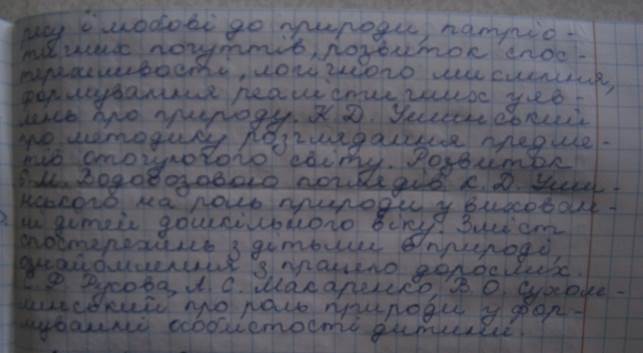 ресу і любові до природи, патріо-
тичних почуттів, розвиток спос-
тережливості, логічного мислення,
формування реалістичних уяв-
лень про природу. К. Д. Ушинський
про методику розглядання предме-
тів оточуючого світу. Розвиток
Є. М. Водовозовою поглядів К. Д. Уши-
нського на роль природи у вихован-
ні дітей дошкільного віку. Зміст
спостережень з дітьми в природі,
ознайомлення з працею дорослих.
С. Ф. Русова, А. С. Макаренко, В. О. Сухом-
линський про роль природи у фор-
муванні особистості дитини.